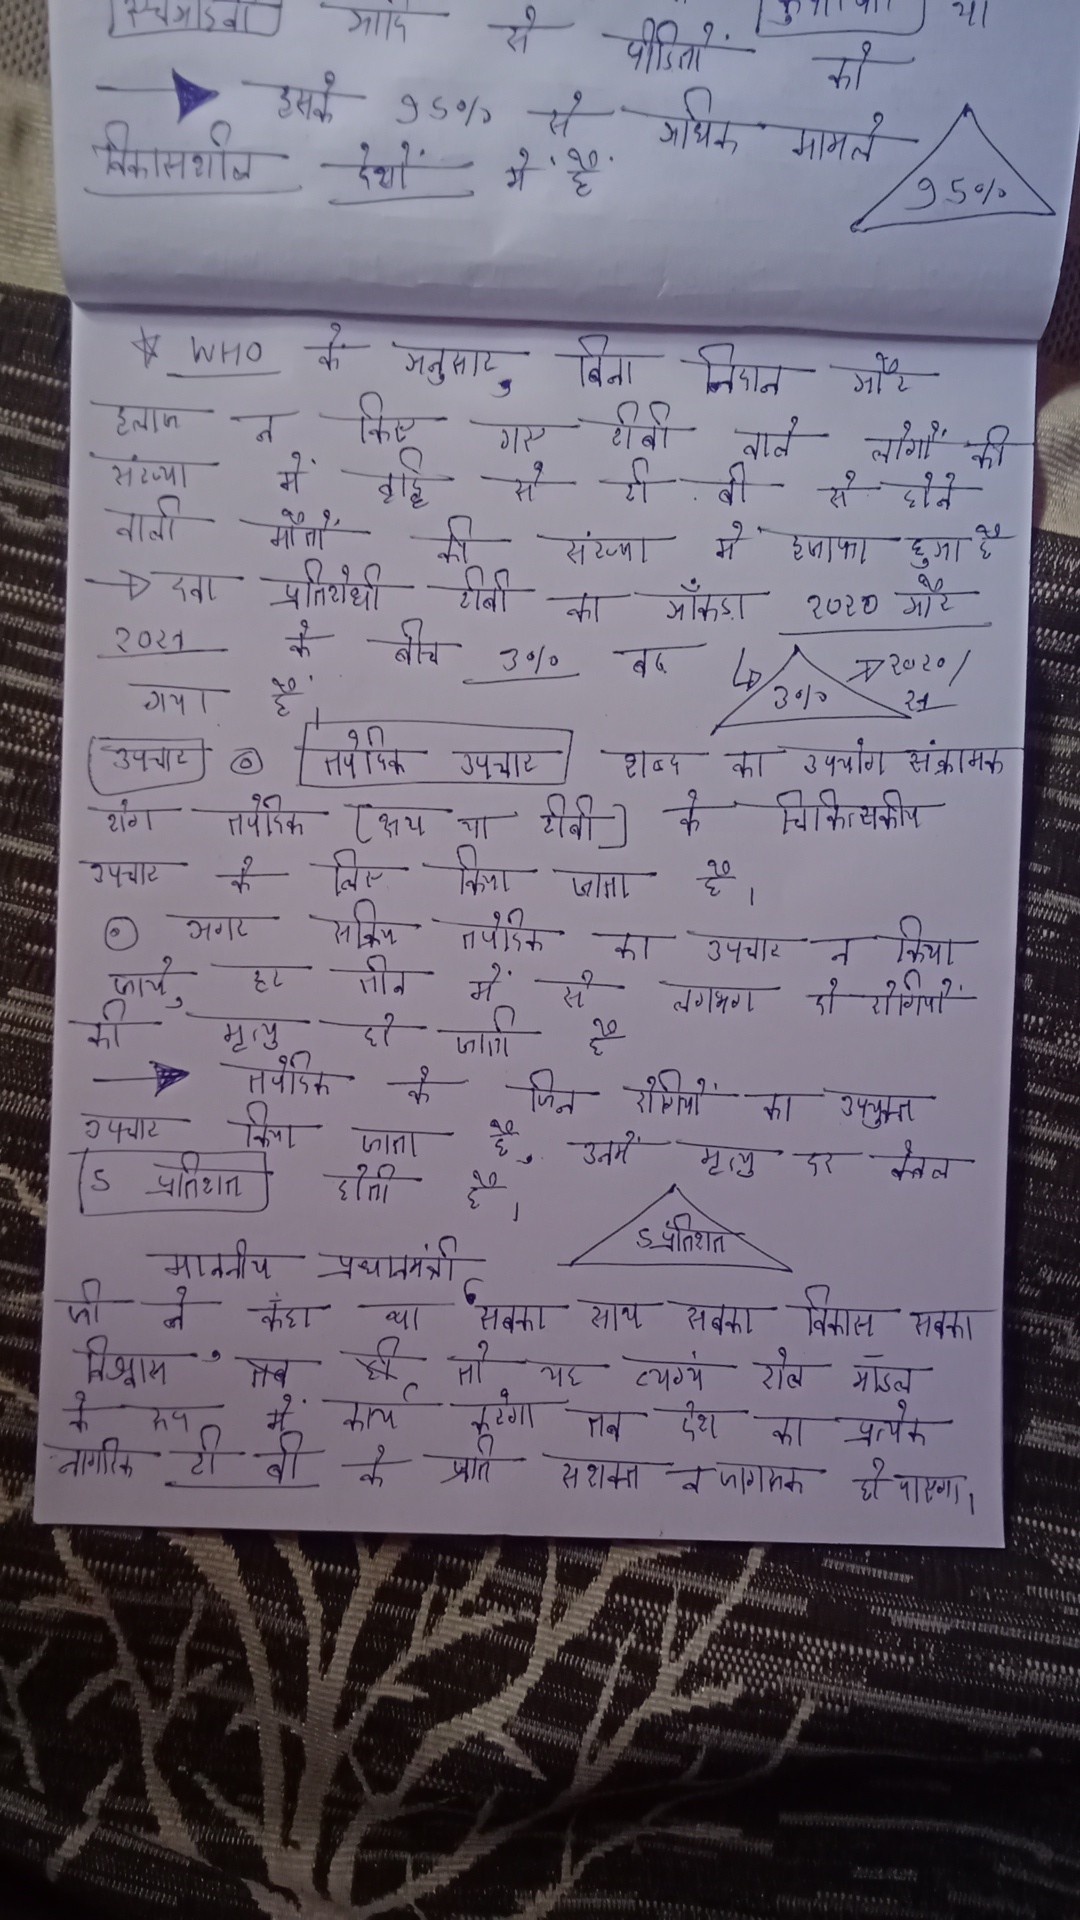 आदि से पीडितों को या
→ इसके 95% से अधिक मामले
विकासशील देशों में है।
95%
* WHO के अनुसार, बिना निदान और
इलाज न किए गए टीबी वाले लोगों की
संख्या में वृद्धि से टी बी से होने
वाली मौतों की संख्या में इजाफा हुआ है
→ दवा प्रतिरोधी टीबी का आँकड़ा २०२० और
२०२१ के बीच 3% बढ़
गया है।
3% → २०२०/
२१
उपचार ⊙ तपेदिक उपचार शब्द का उपयोग संक्रामक
रोग तपेदिक [क्षय या टीबी] के चिकित्सकीय
उपचार के लिए किया जाता है।
⊙ अगर सक्रिय तपेदिक का उपचार न किया
जाये, हर तीन में से लगभग दो रोगियों
की मृत्यु हो जाती है
→ तपेदिक के जिन रोगियों का उपयुक्त
उपचार किया जाता है, उनमें मृत्यु दर केवल
5 प्रतिशत होती है।
5 प्रतिशत
माननीय प्रधानमंत्री
जी ने कहा था 'सबका साथ सबका विकास सबका
विश्वास' तब ही तो यह रोल मॉडल
के रूप में कार्य करेगा तब देश का प्रत्येक
नागरिक टी बी के प्रति सशक्त व जागरूक हो पाएगा।